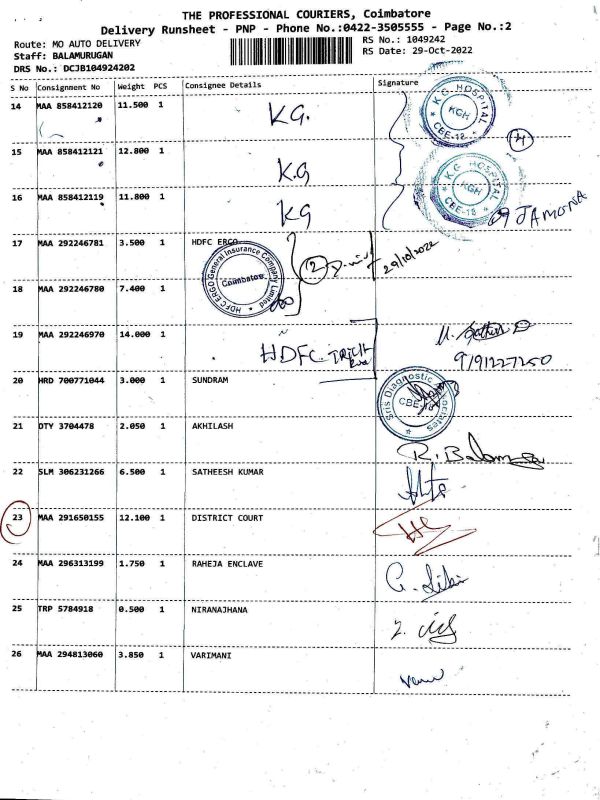 THE PROFESSIONAL COURIERS, Coimbatore
Delivery Runsheet - PNP - Phone No.:0422-3505555 - Page No.:2
Route: MO AUTO DELIVERY
RS No.: 1049242
Staff: BALAMURUGAN
RS Date: 29-Oct-2022
DRS No.: DCJB104924202
S No Consignment No Weight PCS Consignee Details Signature
14 MAA 858412120 11.500 1 KG.
K.G HOSPITAL KGH CEE-18
4
15 MAA 858412121 12.800 1 K.G
K.G HOSPITAL KGH CEE-18
16 MAA 858412119 11.800 1 KG
JAMONA
17 MAA 292246781 3.500 1 HDFC ERGO
HDFC ERGO General Insurance Company Limited Coimbatore
2 29/10/2022
18 MAA 292246780 7.400 1
19 MAA 292246970 14.000 1 HDFC
9191227250
20 HRD 700771044 3.000 1 SUNDRAM
Sris Diagnostic CBE
21 DTY 3704478 2.050 1 AKHILASH
R.
22 SLM 306231266 6.500 1 SATHEESH KUMAR
23 MAA 291650155 12.100 1 DISTRICT COURT
24 MAA 296313199 1.750 1 RAHEJA ENCLAVE
25 TRP 5784918 0.500 1 NIRANAJHANA
26 MAA 294813060 3.850 1 VARIMANI